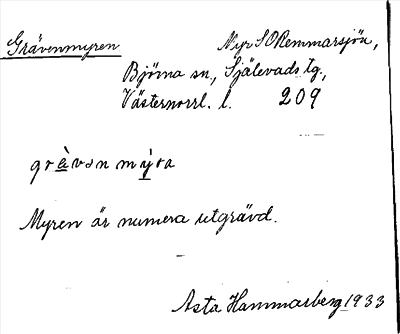 Grävenmyren Myr S O Remmarsjön,
Björna sn, Själevads tg.,
Västernorrl. l. 209
grèvən mýra
Myren är numera utgrävd.
Asta Hammarberg 1933